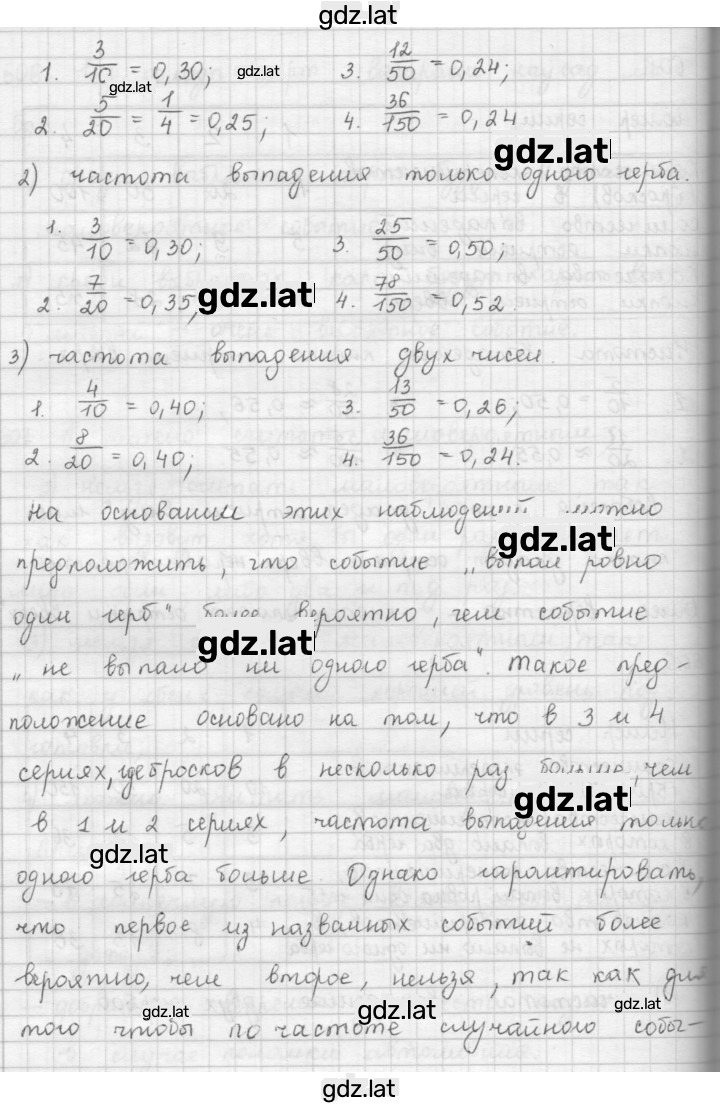 gdz.lat
1. 3/10 = 0,30; gdz.lat 3. 12/50 = 0,24;
gdz.lat
2. 5/20 = 1/4 = 0,25; 4. 36/150 = 0,24
gdz.lat
2) частота выпадения только одного герба.
1. 3/10 = 0,30; 3. 25/50 = 0,50;
2. 7/20 = 0,35; gdz.lat 4. 78/150 = 0,52.
3) частота выпадения двух чисел.
1. 4/10 = 0,40; 3. 13/50 = 0,26;
2. 8/20 = 0,40; 4. 36/150 = 0,24.
На основании этих наблюдений можно
gdz.lat
предположить, что событие „выпал ровно
один герб" более вероятно, чем событие
gdz.lat
„не выпало ни одного герба". Такое пред-
положение основано на том, что в 3 и 4
сериях, где бросков в несколько раз больше, чем
gdz.lat
в 1 и 2 сериях, частота выпадения только
gdz.lat
одного герба больше. Однако гарантировать,
что первое из названных событий более
вероятно, чем второе, нельзя, так как для
gdz.lat gdz.lat gdz.lat
того чтобы по частоте случайного собы-
gdz.lat